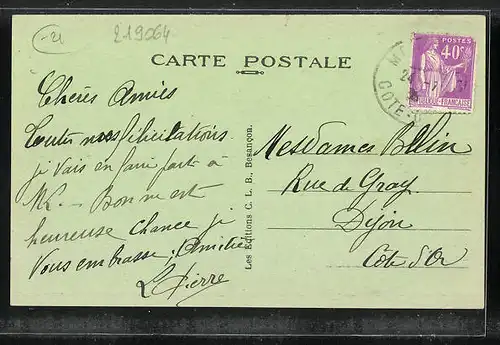 -21
219064
CARTE POSTALE
POSTES
40c
Chères Amies
Toutes nos félicitations
je vais en faire part à
Mr. - Bonne et
heureuse chance je
Vous embrasse, Amitiés
Pierre
Les Editions C. L. B., Besançon.
Mesdames Belin
Rue de Gray
Dijon
Cote d'Or
24
COTE-D
FRANÇAISE